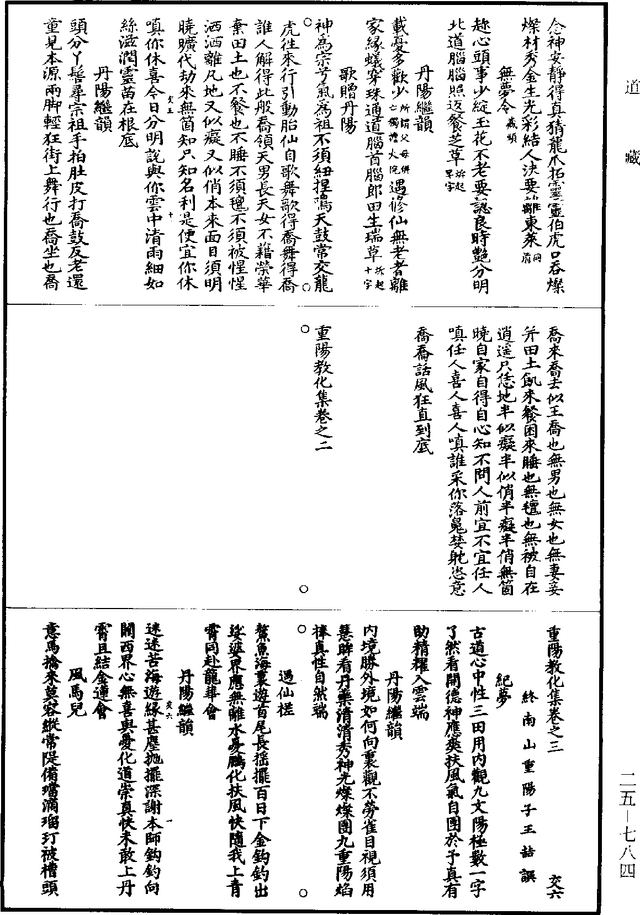 道藏
念神安靜得真猜龍爪拓靈靈伯虎口吞燦
燦材秀金生光彩結人決要離東萊
無夢令 藏頭
趂心頭事少綻玉花不老要誌良時豔分明
北道腦腦照迈餐芝草
丹陽繼韻
載憂多歡少 遇修仙無老耆離
家緣蟻穿珠通道腦首腦郎田生瑞草
歌贈丹陽
神為宗兮氣為祖不須紐捏鳴天鼓常交龍
虎徃來行引動胎仙自歌舞歌得喬舞得喬
誰人解得此般喬領天男長天女不藉榮華
棄田土也不餐也不睡不須氊不須被惺惺
洒洒離凡地又似癡又似俏本來面目須明
曉曠代劫來無箇知只知名利是便宜你休
嗔你休喜今日分明說與你雲中清雨細如
絲滋潤靈苗在根底
丹陽繼韻
頭分丫髻尋宗祖手拍肚皮打喬鼓反老還
童見本源兩脚輕狂街上舞行也喬坐也喬
喬來喬去似王喬也無男也無女也無妻妾
并田土飢來餐困來睡也無氊也無被自在
逍遥只恁地半似癡半似俏半癡半俏無箇
曉自家自得自心知不問人前宜不宜任人
嗔任人喜人喜人嗔誰采你落魄婪耽恣意
喬喬話風狂直到底
重陽教化集卷之二
重陽教化集卷之三
終南山重陽子王嚞譔
交六
紀夢
古道心中性三田用內觀九文陽極數一字
了然看開德神應爽扶風氣自團於予真有
助精耀入雲端
丹陽繼韻
內境勝外境如何向裏觀不勞雀目視須用
慧眸看丹藥清清秀神光燦燦團九重陽焰
捧真性自然端
遇仙槎
鰲魚海裏遊首尾長摇擺百日下金鈎鈎出
娑婆界應無離水憂鵬化扶風快隨我上青
霄同赴龍華會
丹陽繼韻
迷迷苦海遊緣甚塵抛擺深謝本師鈎鈎向
關西界心無喜與憂化道崇真快未敢上丹
霄且結金蓮會
風馬兒
意馬擒來莫容縱常隄備璫滴瑠玎被槽頭
二五—七八四